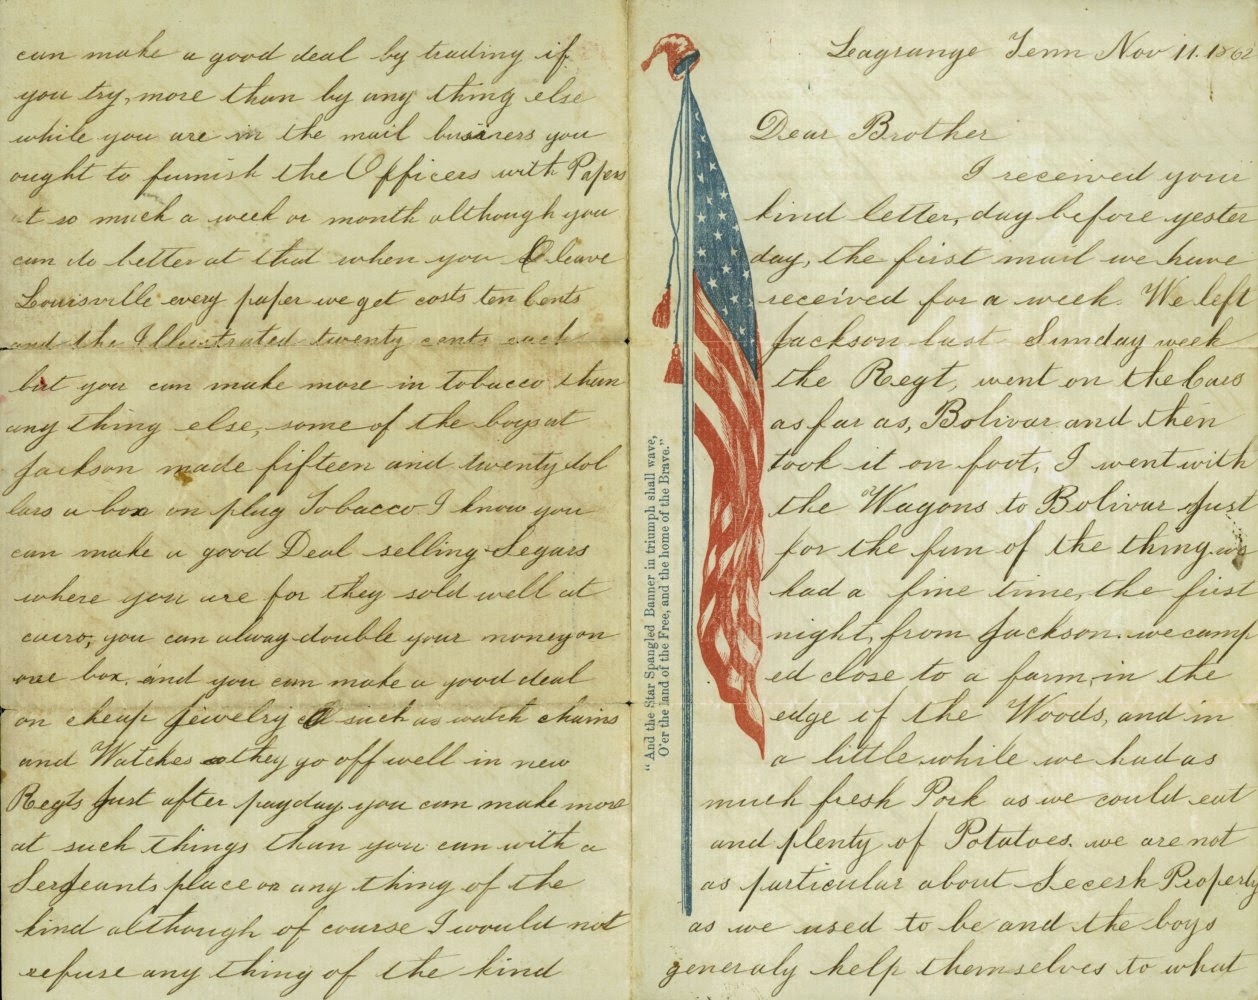 Leagrange Tenn Nov 11. 1862
Dear Brother
I received your
kind letter, day before yester
day, the first mail we have
received for a week. We left
Jackson last Sunday week
the Regt, went on the Cars
as far as, Bolivar and then
took it on foot, I went with
the Wagons to Bolivar Just
for the fun of the thing. we
had a fine time, the first
night, from Jackson. we camp
ed close to a farm, in the
edge of the Woods, and in
a little while we had as
much fresh Pork as we could eat
and plenty of Potatoes. we are not
as particular about Secesh Property
as we used to be and the boys
generaly help themselves to what
"And the Star Spangled Banner in triumph shall wave,
O'er the land of the Free, and the home of the Brave."
can make a good deal by trading if
you try, more than by any thing else
while you are in the mail business you
ought to furnish the Officers with Papers
at so much a week or month although you
can do better at that when you leave
Louisville every paper we get costs ten Cents
and the Illustrated twenty cents each
but you can make more in tobacco than
any thing else, some of the boys at
Jackson made fifteen and twenty dol
lars a box on plug Tobacco I know you
can make a good Deal selling Segars
where you are for they sold well at
cairo, you can alway double your money on
one box. and you can make a good deal
on cheap Jewelry such as watch chains
and Watches they go off well in new
Regts Just after payday. you can make more
at such things than you can with a
Serjeants place or any thing of the
kind although of course I would not
refuse any thing of the kind